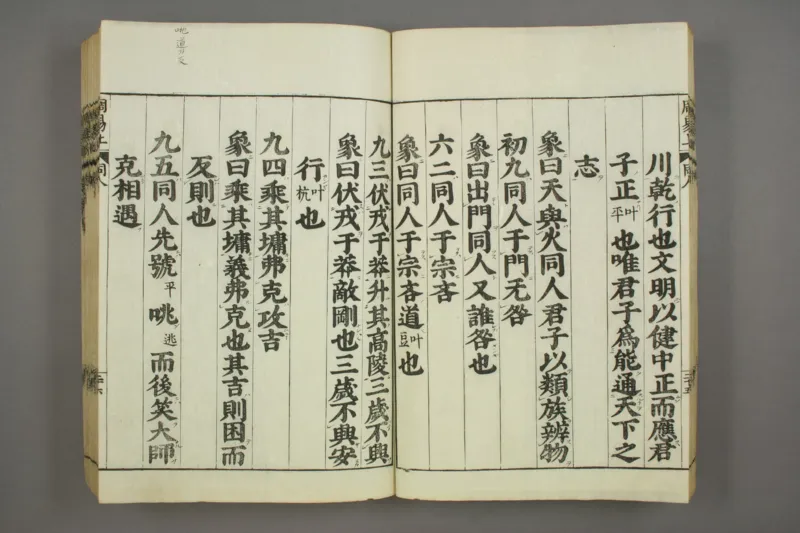 川乾行也文明以健中正而應君
子正叶平也唯君子爲能通天下之
志
象曰天與火同人君子以類族辨物
初九同人于門无咎
象曰出門同人又誰咎也
六二同人于宗吝
象曰同人于宗吝道叶豆也
九三伏戎于莽升其高陵三歲不興
象曰伏戎于莽敵剛也三歲不興安
行叶杭也
九四乘其墉弗克攻吉
象曰乘其墉義弗克也其吉則困而
反則也
九五同人先號平咷逃而後笑大師
克相遇
周易上
同人
周易上
同人